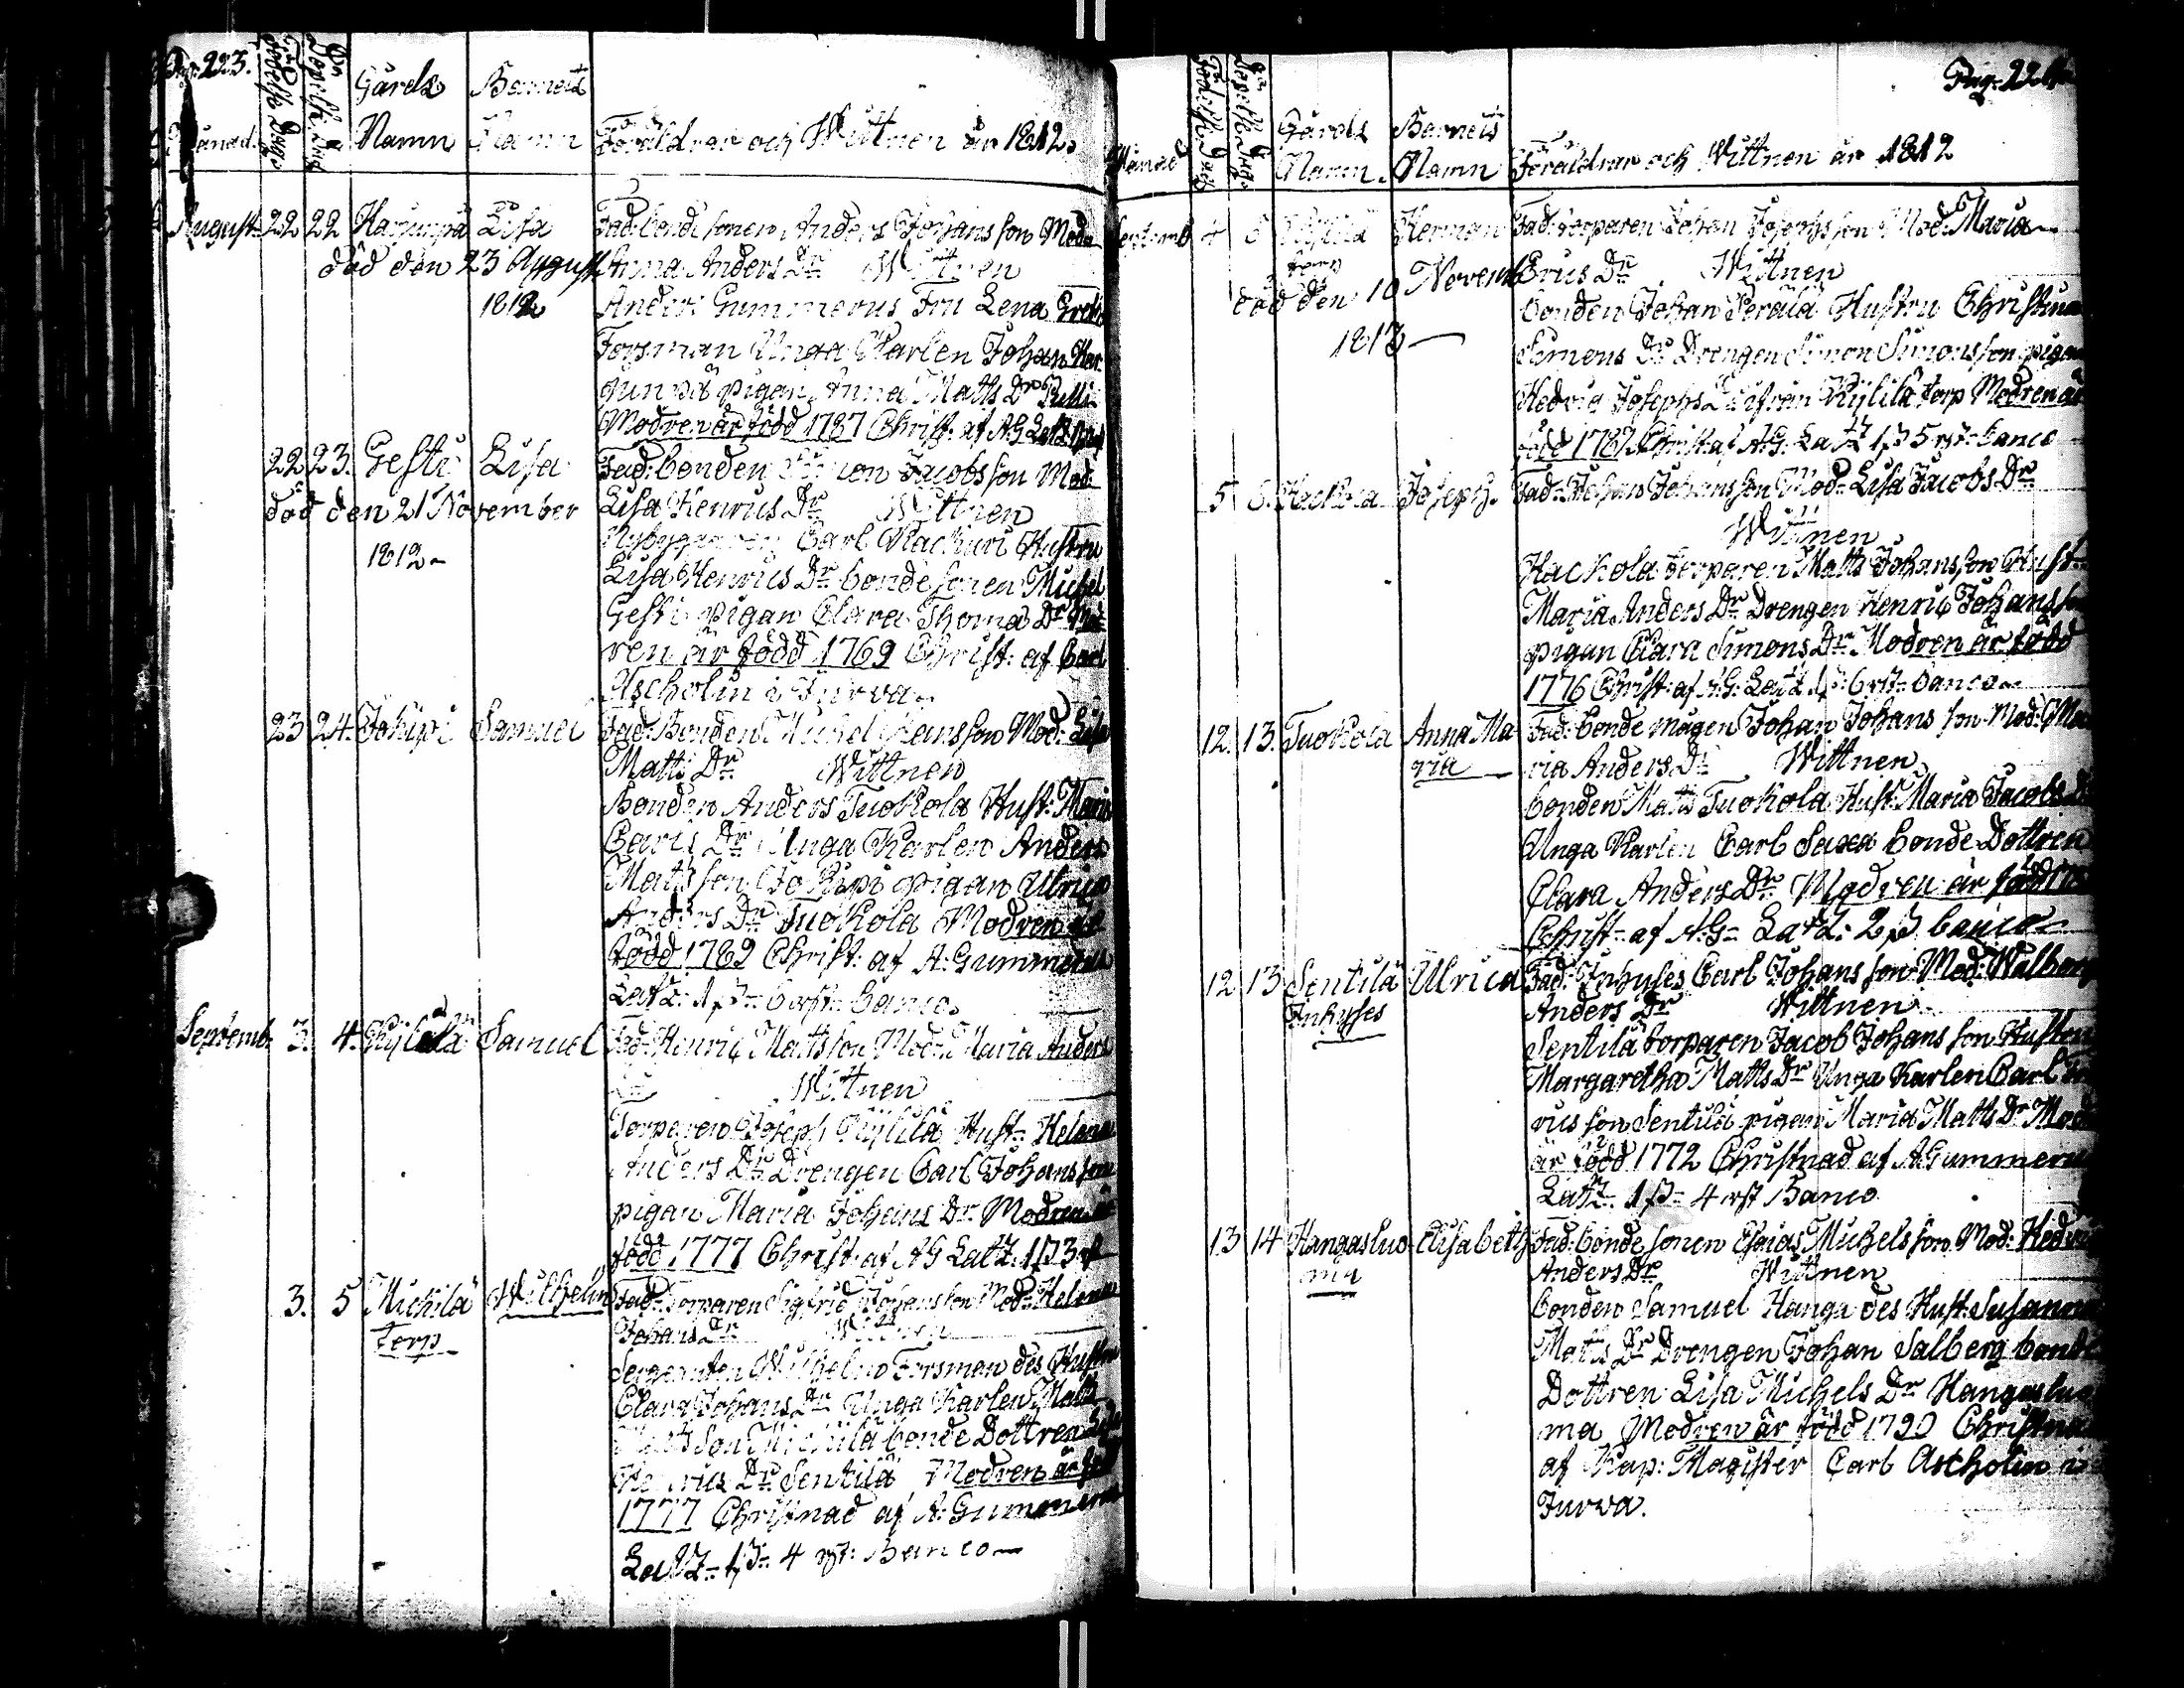 Pag: 223.
Födelse Dag
Döpelse Dag
Månad.
Gårds
Namn
Barnets
Namn
Föräldrar och Wittnen år 1812.
August 22 22 Harjunpä Lisa Fad: bonde sonen Anders Johans son Mod:
död den 23 August Anna Anders Dr Wittnen
1812 Anders Gummerus Fru Lena Greta
Forsman Unga Karlen Johan Har-
junpä pigan Anna Matts Dr
Modren är född 1787 Christ: af A: G
22 23. Gesti Lisa Fad: bonden Jacobs son Mod:
död den 21 November Lisa Henrics Dr Wittnen
1812 Nybyggaren Carl Hustru
Lisa Henrics Dr bonde sonen Michel
Gesti pigan Clara Thomæ Dr Mod-
ren är född 1769 Christ: af Carl
Ascholin i Jurva.
23 24. Samuel Fad: Bonden Michel Hans son Mod: Lisa
Matts Dr Wittnen
Bonden Anders Tuokola Hust: Maria
Carls Dr Unga Karlen Anders
Matts son pigan Ulrica
Anders Dr Tuokola Modren är
född 1769 Christ: af A: Gummerus
Septemb: 3. 4. Samuel Fad: Henric Matts son Mod: Maria Anders
Dr Wittnen
Torparen Joseph Hust: Helena
Anders Dr Drengen Carl Johans son
pigan Maria Johans Dr Modren är
född 1777 Christ: af A G
3. 5 Mickilä Wilhelm Fad: Torparen Sigfrid Johans son Mod: Helena
Torp Johans Dr Wittnen
Sergeanten Wilhelm Forsman des Hustru
Clara Johans Dr Unga Karlen Matts
Matts son Mickilä bonde Dottren
Henrics Dr Sentilä Modren är född
1777 Christnad af A: Gummerus
4 rst: Banco
Pag: 224
Födelse Dag
Döpelse Dag
Månad
Gårds
Namn.
Barnets
Namn
Föräldrar och Wittnen år 1812
Septemb 4 5 Herman Fad: torparen Johan Josephs son Mod: Maria
torp Erics Dr Wittnen
död den 10 Novemb bonden Johan Perälä Hustru Christina
1813 Simons Dr Drengen Simon Simons son pigan
Hedvig Josephs Dr ifrån torp Modren är
född 1782 Christ: af A: G: 5 rst: banco
5 6. Hackola Joseph. Fad: Johan Johans son Mod: Lisa Jacobs Dr
Wittnen
Hackola torparen Matts Johans son Hust:
Maria Anders Dr Drengen Henric Johans son
pigan Clara Simons Dr Modren är född
1776 Christ: af A: G: 6 rst: banco
12. 13. Tuokola Anna Ma Fad: bonde mågen Johan Johans son Mod: Ma
ria ria Anders Dr Wittnen
bonden Matts Tuokola Hust: Maria Jacobs Dr
Unga Karlen Carl Saxa bonde Dottren
Clara Anders Dr Modren är född
Christ: af A: G: banco
12 13 Sentilä Ulrica Fad: Inhyses Carl Johans son Mod: Walborg
Inhyses Anders Dr Wittnen
Sentilä torparen Jacob Johans son Hustru
Margaretha Matts Dr Unga Karlen Carl
rics son Sentilä pigan Maria Matts Dr Mod
är född 1772 Christnad af A: Gummerus
4 rst Banco
13 14 Hangasluo Elisabeth Fad: bonde sonen Esaias Michels son Mod: Hedvig
ma Anders Dr Wittnen
bonden Samuel Hanga des Hust: Susanna
Matts Dr Drengen Johan Salberg bonde
Dottren Lisa Michels Dr Hangasluo
ma Modren är född 1790 Christnad
af Kap: Magister Carl Ascholin i
Jurva.